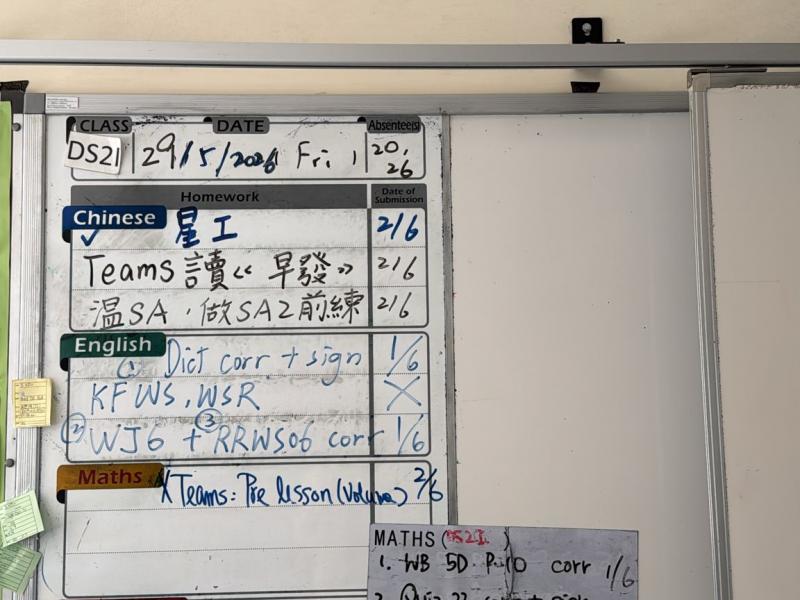 CLASS DATE Absentee(s)
DS21 29/5/2026 Fri. 1 20, 26
Homework Date of Submission
Chinese
✓ 星工 2/6
Teams 讀《早發》 2/6
温SA，做SA2前練 2/6
English
① Dict corr + sign 1/6
KFWS, WSR X
② WJ6 + ③ RRWS06 corr 1/6
Maths
Teams: Pre lesson (Volume) 2/6
MATHS (DS21)
1. WB 5D P.10 corr 1/6